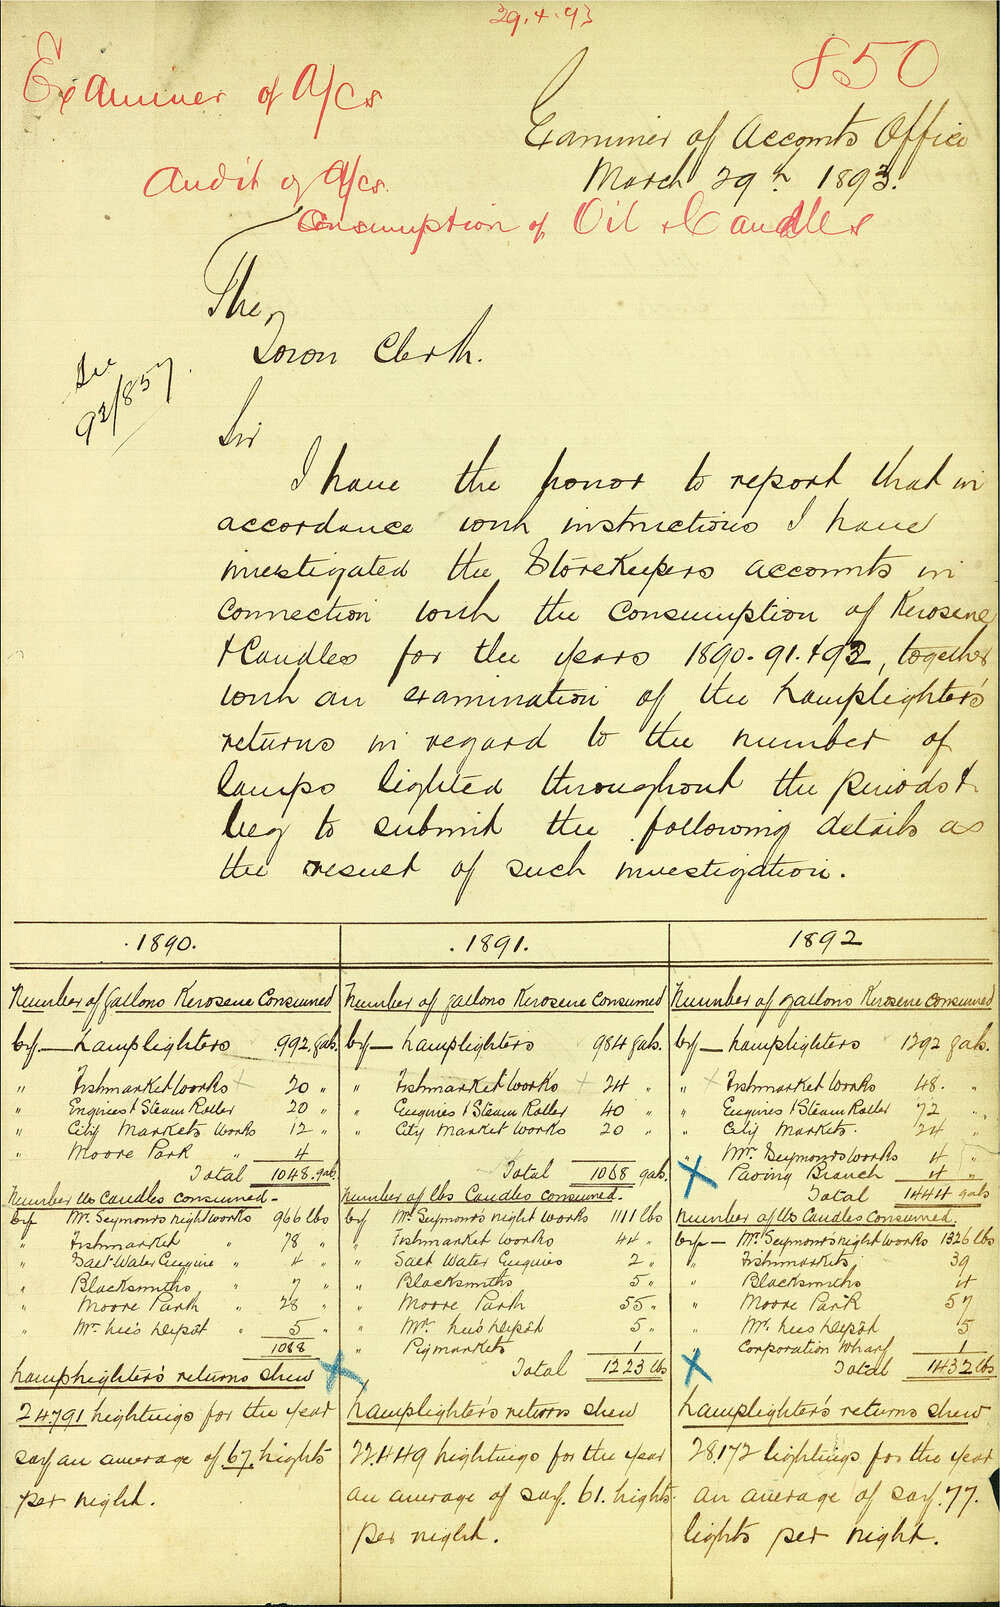 29.4.93
850
Examiner of A/cs
Examiner of Accounts Office
March 29th 1893.
Audit of A/cs.
Consumption of Oil & Candles
The
Town Clerk.
See
92/857
Sir
I have the honor to report that in
accordance with instructions I have
investigated the Storekeepers accounts in
connection with the consumption of Kerosene
& Candles for the years 1890. 91. & 92, together
with an examination of the Lamplighters
returns in regard to the number of
lamps lighted throughout the periods &
beg to submit the following details as
the result of such investigation.
1890.
Number of gallons Kerosene Consumed
by — Lamplighters 992 gals.
" Fishmarket Works 20 "
" Engines & Steam Roller 20 "
" City Markets Works 12 "
" Moore Park 4
Total 1048 gals
Number lbs Candles consumed -
by Mr. Seymours night works 966 lbs
" Fishmarket " 78 "
" Salt Water Engine " 4 "
" Blacksmiths " 7 "
" Moore Park " 28 "
" Mr. Lee's depôt " 5 "
1088
Lamplighter's returns shew
24791 lightings for the year
say an average of 67 lights
per night.
1891.
Number of gallons Kerosene Consumed
by — Lamplighters 984 gals.
" Fishmarket Works 24 "
" Engines & Steam Roller 40 "
" City Market Works 20 "
Total 1068 gals.
Number of lbs Candles Consumed.
by Mr. Seymours night works 1111 lbs
" Fishmarket Works 44 "
" Salt Water Engines 2 "
" Blacksmiths 5 "
" Moore Park 55 "
" Mr. Lee's depôt 5 "
" Pigmarkets 1
Total 1223 lbs
Lamplighter's returns shew
22449 lightings for the year
an average of say. 61. lights
per night.
1892
Number of gallons Kerosene consumed
by — Lamplighters 1292 gals.
" Fishmarket Works 48. "
" Engines & Steam Roller 72 "
" City Markets. 24 "
" Mr. Seymours Works 4 "
" Paving Branch 4 "
Total 1444 gals
Number of lbs Candles Consumed.
by — Mr. Seymours night Works 1326 lbs
" Fishmarkets 39
" Blacksmiths 4
" Moore Park 57
" Mr. Lees depôt 5
" Corporation Wharf 1
Total 1432 lbs
Lamplighter's returns shew
28172 lightings for the year
an average of say. 77.
lights per night.